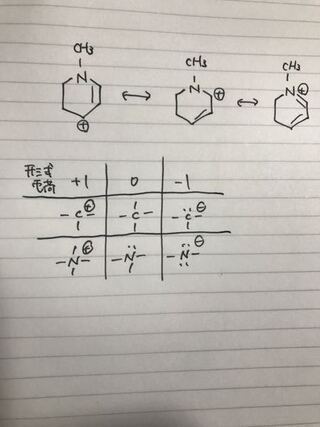 CH₃ CH₃ CH₃
N N N
⊕ ↔ ⊕ ↔ ⊕
形式電荷 +1 0 -1
-C⊕- -C- -C̈⊖-
-N⊕- -N̈- -N̈⊖-